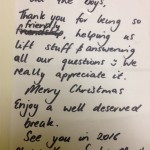 the boys.
Thank you for being so
friendly
friendship, helping us
lift stuff & answering
all our questions, we
really appreciate it.
Merry Christmas
Enjoy a well deserved
break.
See you in 2016